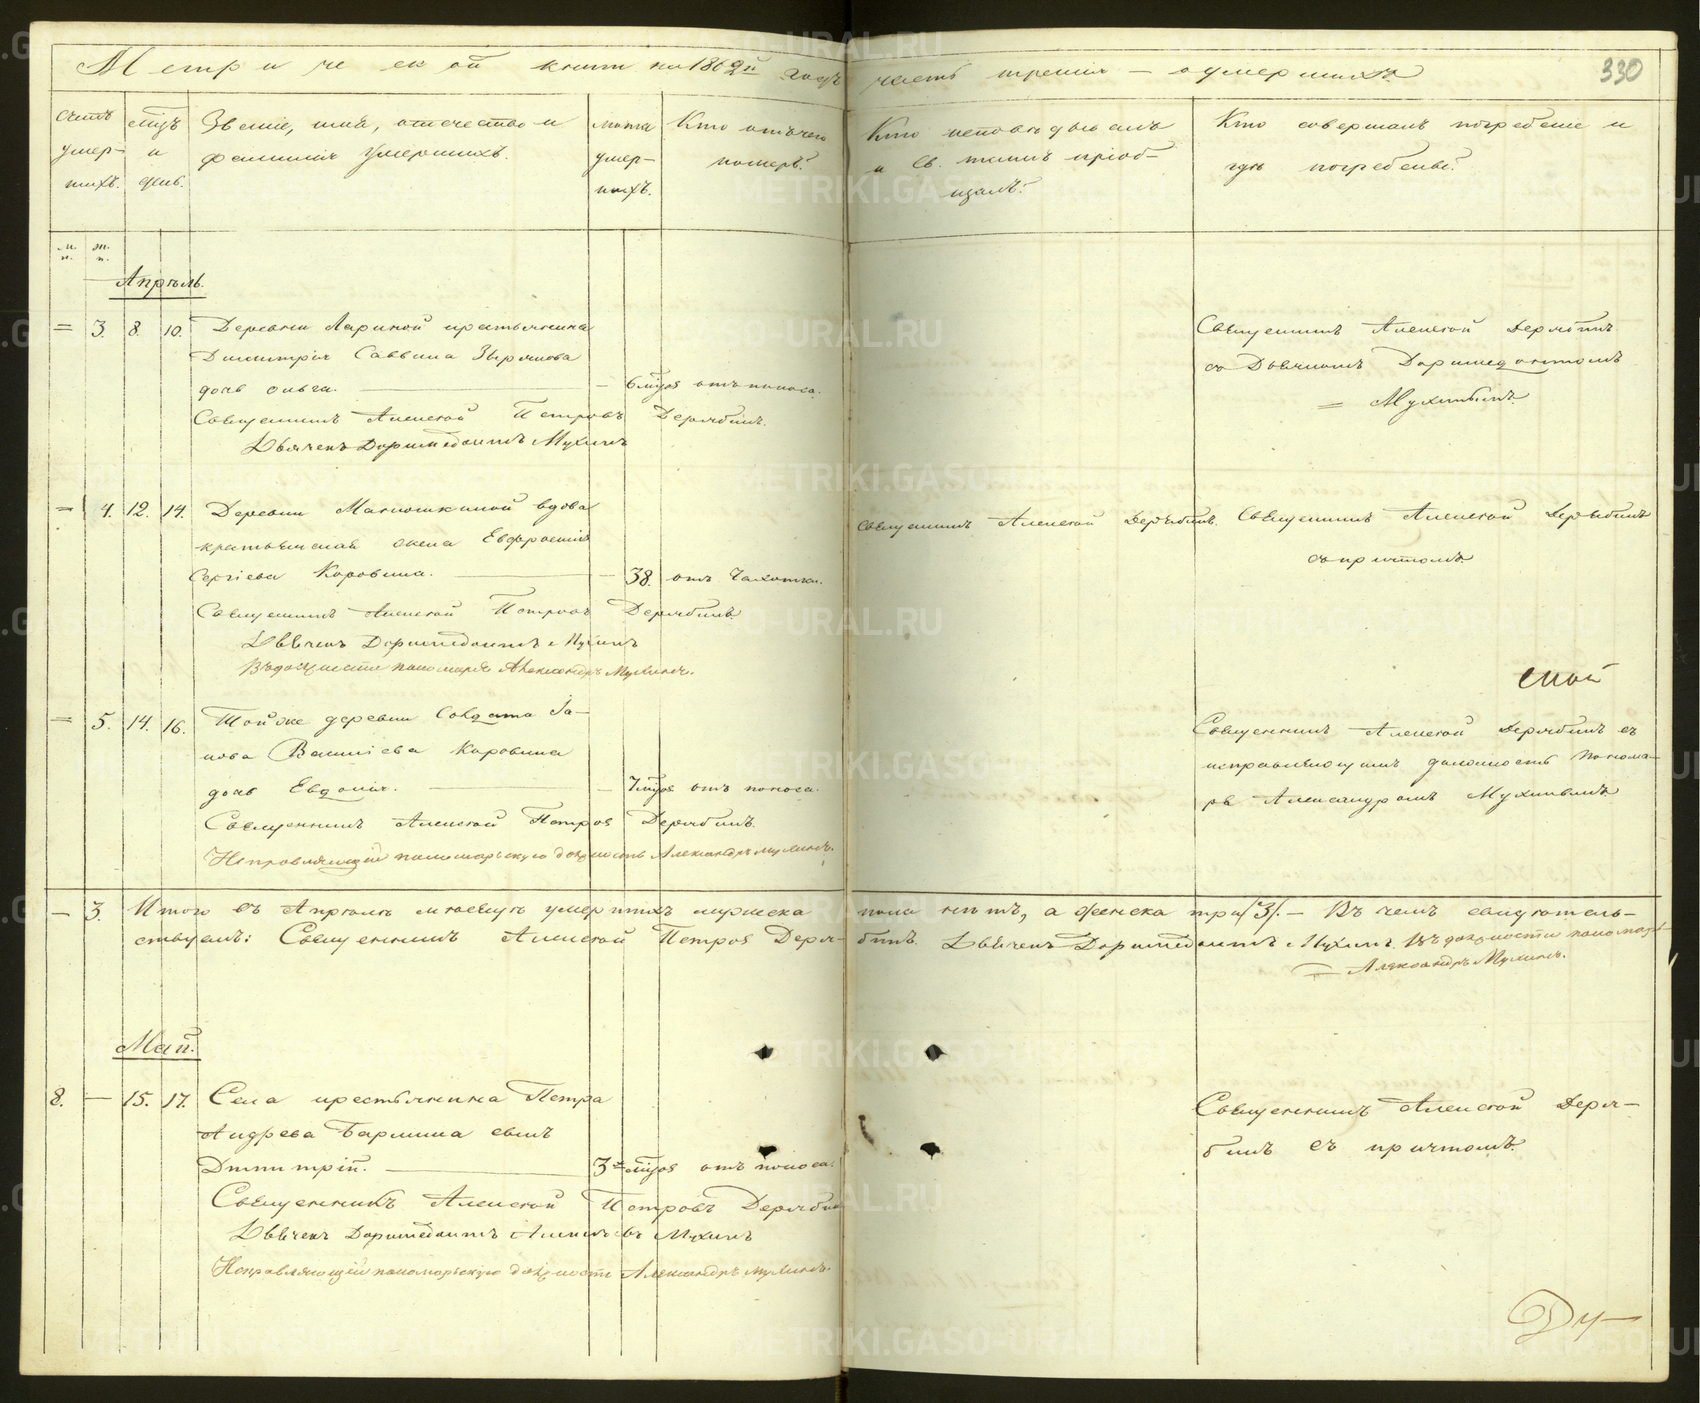 Метрической книги на 1862й годъ часть третія — о умершихъ.
330
Счетъ умер- шихъ.
Мѣсяцъ и день.
Званіе, имя, отчество и
фамилія умершихъ.
Лѣта умер- шихъ.
Кто отъ чего
померъ.
Кто исповѣдывалъ
и Св. тайнъ пріоб-
щалъ.
Кто совершалъ погребеніе и
гдѣ погребены.
м. п.
ж. п.
Апрѣль.
= 3. 8. 10. Деревни Лариной крестьянина
Димитрія Саввина Зырянова
дочь Ольга. — 6 мѣц. отъ поноса.
Священникъ Алексѣй Петровъ Дерябинъ.
Дьячекъ Доримедонтъ Мухинъ
Священникъ Алексѣй Дерябинъ
со Дьячкомъ Доримедонтомъ
= Мухинымъ.
= 4. 12. 14. Деревни Матюшкиной вдова
крестьянская жена Евфросинія
Сергіева Коровина. — 38. отъ Чахотки.
Священникъ Алексѣй Петровъ Дерябинъ
Дьячекъ Доримедонтъ Мухинъ
Въ должности пономаря Александръ Мухинъ.
Священникъ Алексѣй Дерябинъ.
Священникъ Алексѣй Дерябинъ
съ причтомъ.
= 5. 14. 16. Той же деревни Солдата Іа-
кова Василіева Коровина
дочь Евдокія. — 7 мѣц. отъ поноса.
Священникъ Алексѣй Петровъ Дерябинъ.
Исправляющій пономарскую должность Александръ Мухинъ.
Священникъ Алексѣй Дерябинъ съ
исправляющимъ должность Понома-
ря Александромъ Мухинымъ
— 3. Итого въ Апрѣлѣ мѣсяцѣ умершихъ мужеска пола нѣтъ, а женска три /3/. — Въ чемъ свидѣтель-
ствуемъ: Священникъ Алексѣй Петровъ Деря- бинъ. Дьячекъ Доримедонтъ Мухинъ. Въ должности пономаря
= Александръ Мухинъ.
Май.
8. — 15. 17. Села крестьянина Петра
Андреева Бармина сынъ
Димитрій. — 3хъ мѣц. отъ поноса.
Священникъ Алексѣй Петровъ Дерябинъ
Дьячекъ Доримедонтъ Мухинъ
Исправляющій пономарскую должность Александръ Мухинъ.
Священникъ Алексѣй Деря-
бинъ съ причтомъ.
Ду-
METRIKI.GASO-URAL.RU